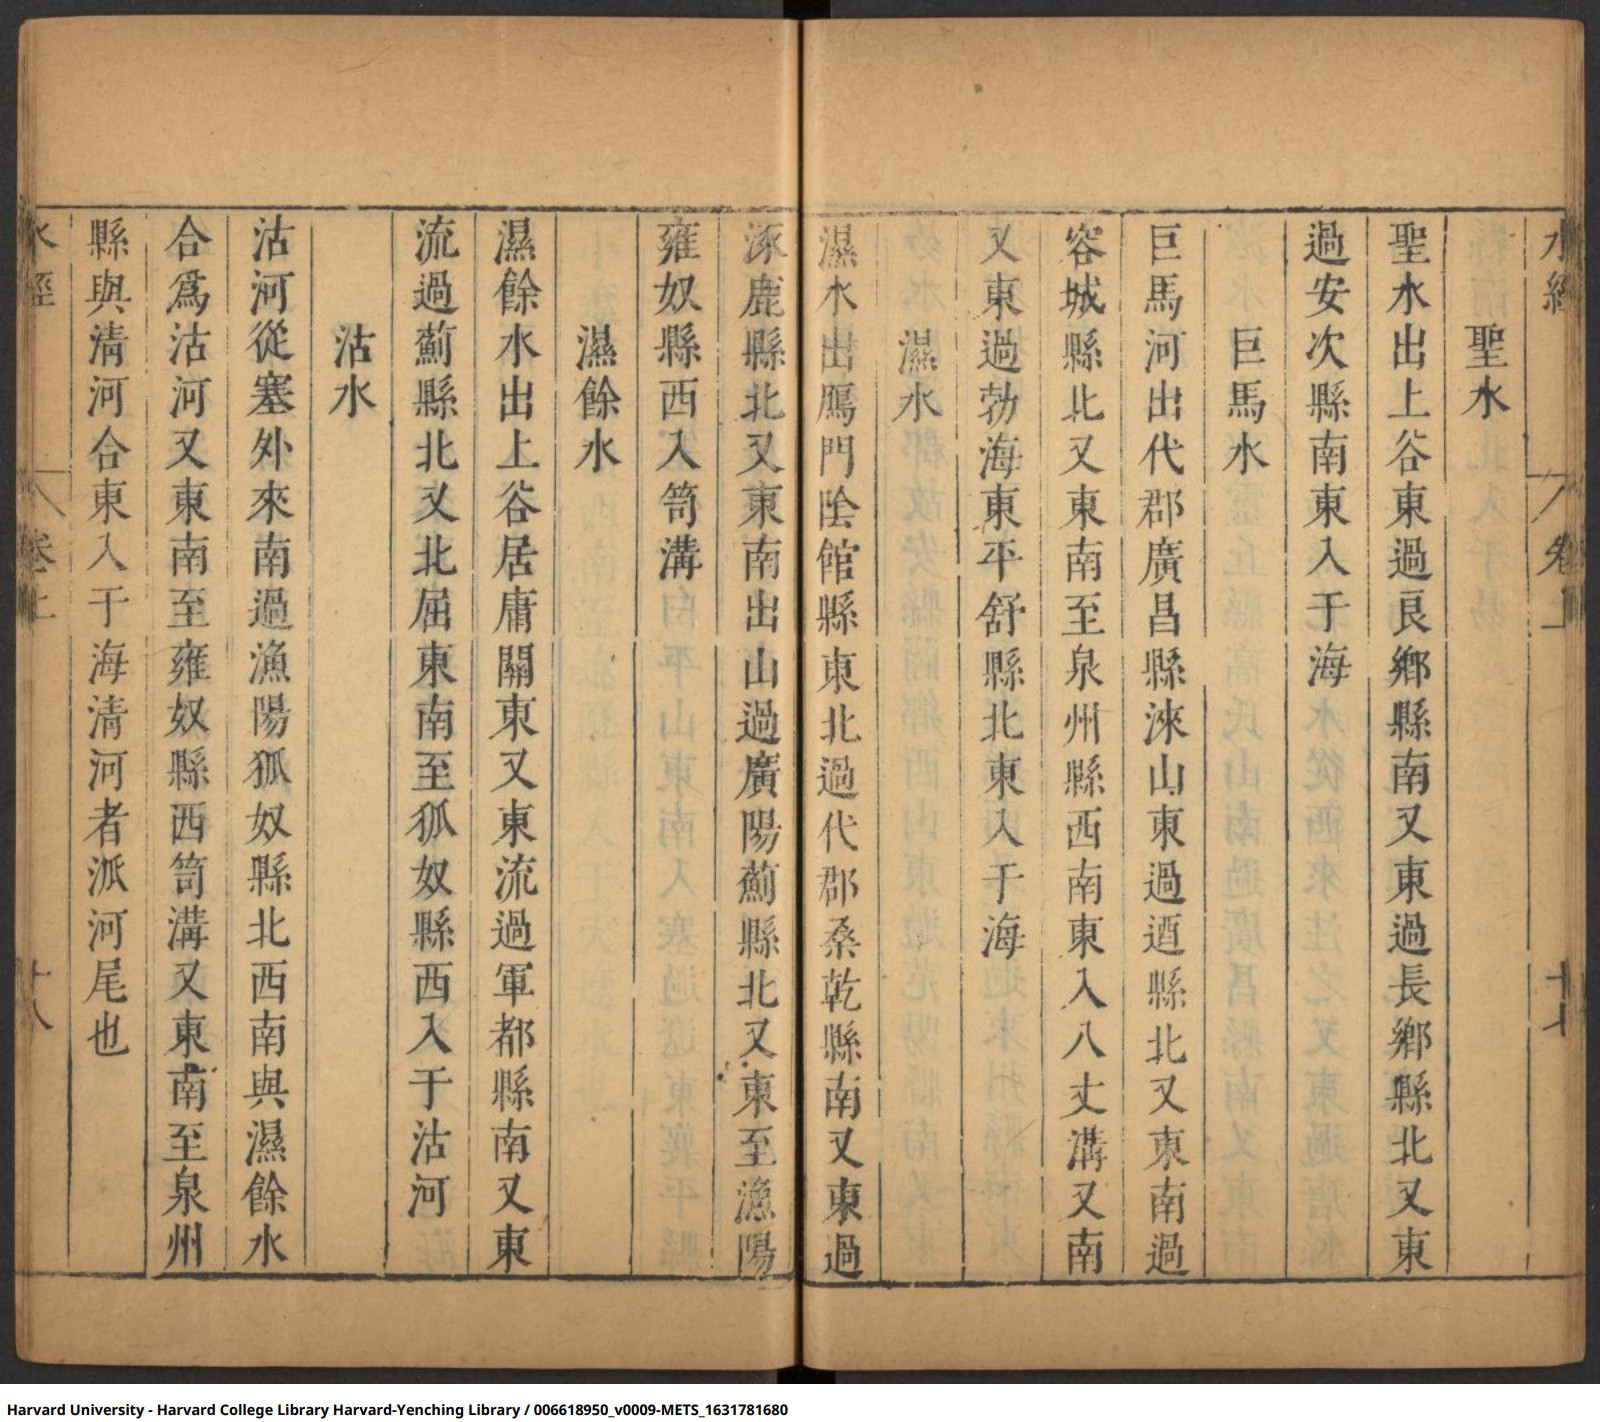 水經 卷上 十七
聖水
聖水出上谷東過良鄉縣南又東過長鄉縣北又東
過安次縣南東入于海
巨馬水
巨馬河出代郡廣昌縣淶山東過逎縣北又東南過
容城縣北又東南至泉州縣西南東入八丈溝又南
又東過勃海東平舒縣北東入于海
濕水
濕水出鴈門陰館縣東北過代郡桑乾縣南又東過
涿鹿縣北又東南出山過廣陽薊縣北又東至漁陽
雍奴縣西入笥溝
濕餘水
濕餘水出上谷居庸關東又東流過軍都縣南又東
流過薊縣北又北屈東南至狐奴縣西入于沽河
沽水
沽河從塞外來南過漁陽狐奴縣北西南與濕餘水
合爲沽河又東南至雍奴縣西笥溝又東南至泉州
縣與清河合東入于海清河者派河尾也
水經 卷上 十八
Harvard University - Harvard College Library Harvard-Yenching Library / 006618950_v0009-METS_1631781680